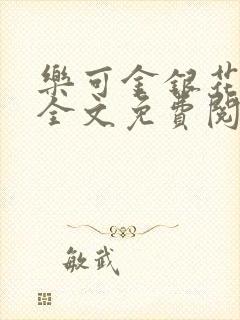 樂可金銀花
全文免費閱
敏武